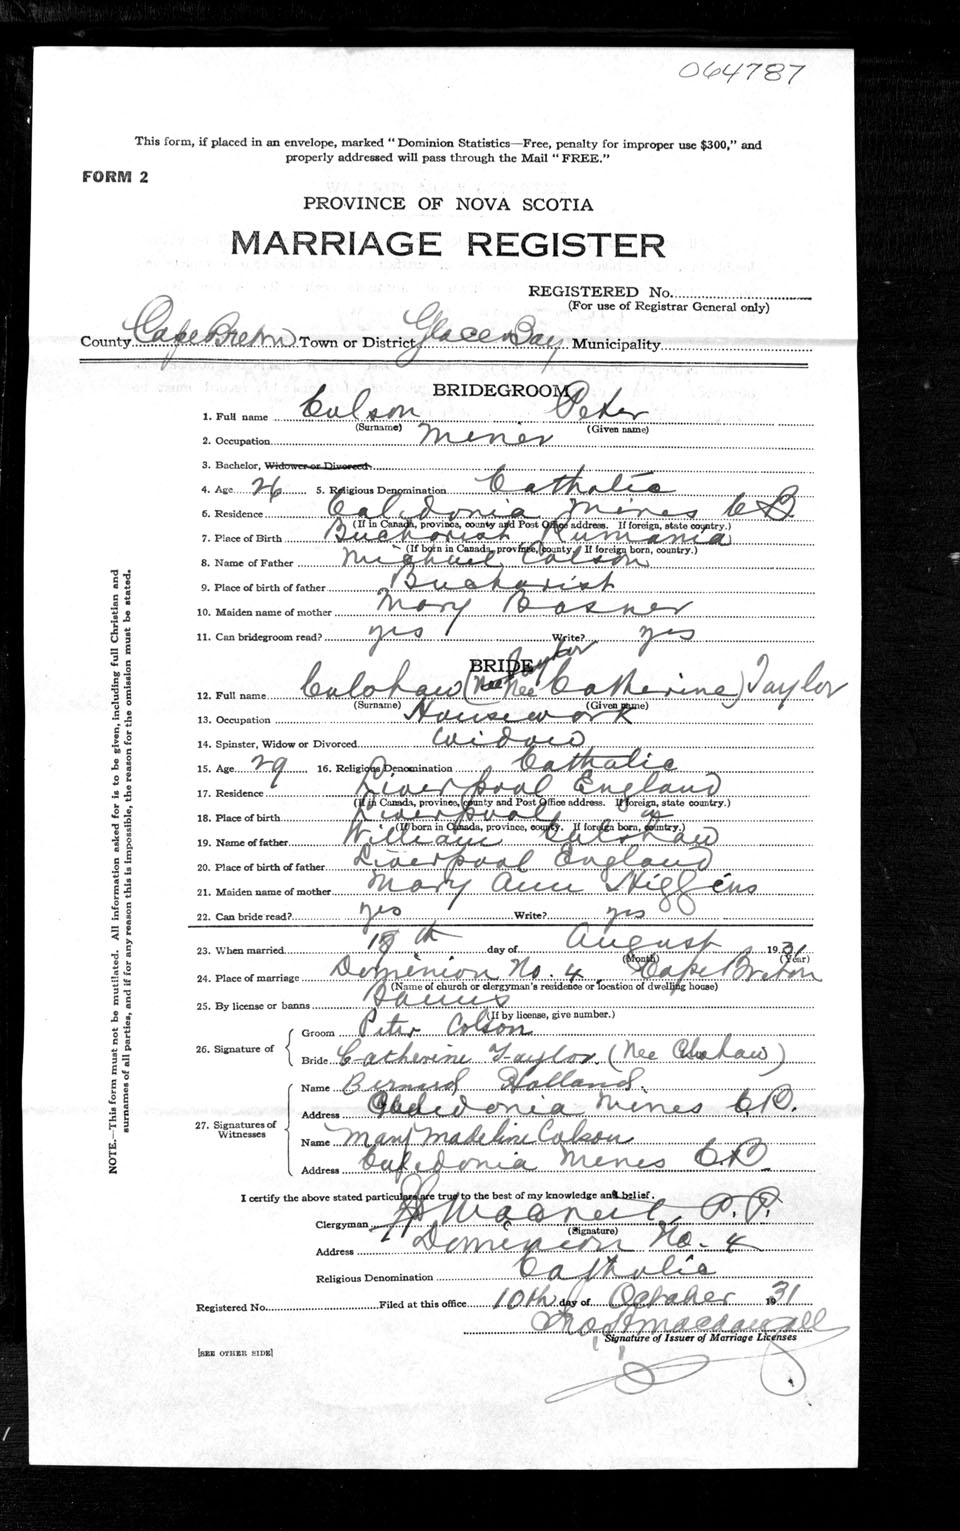 064787
This form, if placed in an envelope, marked "Dominion Statistics—Free, penalty for improper use $300," and
properly addressed will pass through the Mail "FREE."
FORM 2
PROVINCE OF NOVA SCOTIA
MARRIAGE REGISTER
REGISTERED No.
(For use of Registrar General only)
County Cape Breton Town or District Glace Bay Municipality
BRIDEGROOM
1. Full name Colson Peter
(Surname) (Given name)
2. Occupation Miner
3. Bachelor, Widower or Divorced
4. Age 26 5. Religious Denomination Catholic
6. Residence Caledonia Mines CB
(If in Canada, province, county and Post Office address. If foreign, state country.)
7. Place of Birth Bucharist Rumania
(If born in Canada, province, county. If foreign born, country.)
8. Name of Father Michael Colson
9. Place of birth of father Bucharist
10. Maiden name of mother Mary Bosner
11. Can bridegroom read? yes Write? yes
BRIDE Taylor
12. Full name Culshaw (Nee Nee Catherine) Taylor
(Surname) (Given name)
13. Occupation Housework
14. Spinster, Widow or Divorced Widow
15. Age 29 16. Religious Denomination Catholic
17. Residence Liverpool England
(If in Canada, province, county and Post Office address. If foreign, state country.)
18. Place of birth Liverpool "
(If born in Canada, province, county. If foreign born, country.)
19. Name of father William Culshaw
20. Place of birth of father Liverpool England
21. Maiden name of mother Mary Ann Higgins
22. Can bride read? yes Write? yes
23. When married 18th day of August 1931
(Month) (Year)
24. Place of marriage Dominion No. 4, Cape Breton
(Name of church or clergyman's residence or location of dwelling house)
25. By license or banns Banns
(If by license, give number.)
26. Signature of Groom Peter Colson
Bride Catherine Taylor (Nee Culshaw)
27. Signatures of Witnesses Name Bernard Holland
Address Caledonia Mines C.B.
Name Mary Madeline Colson
Address Caledonia Mines C.B.
I certify the above stated particulars are true to the best of my knowledge and belief.
Clergyman MacNeil P.P.
(Signature)
Address Dominion No. 4
Religious Denomination Catholic
Registered No. Filed at this office 10th day of October 1931
MacDougall
Signature of Issuer of Marriage Licenses
[SEE OTHER SIDE]
NOTE.—This form must not be mutilated. All information asked for is to be given, including full Christian and
surnames of all parties, and if for any reason this is impossible, the reason for the omission must be stated.